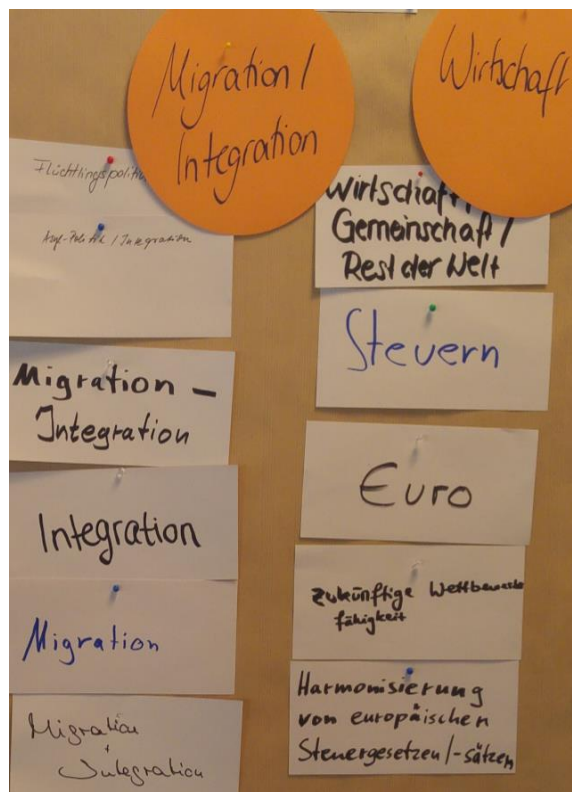 Migration /
Integration
Flüchtlingspolitik
Asyl-Politik / Integration
Migration –
Integration
Integration
Migration
Migration
+
Integration
Wirtschaft
Wirtschaft /
Gemeinschaft /
Rest der Welt
Steuern
Euro
Zukünftige Wettbewerbs
fähigkeit
Harmonisierung
von europäischen
Steuergesetzen /-sätzen